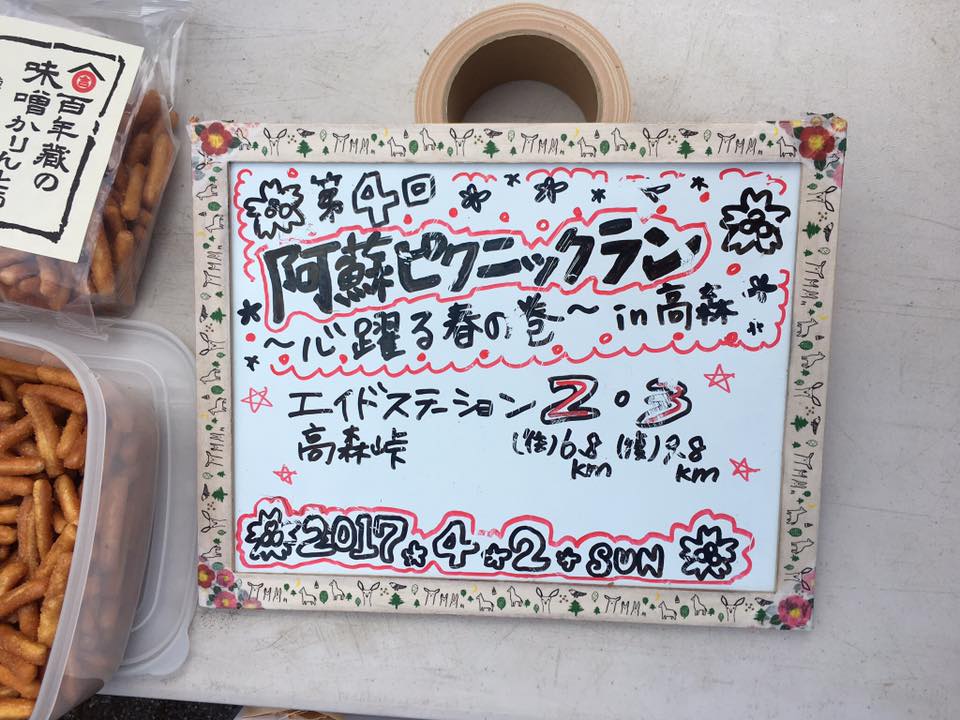 百年蔵の
味噌かりんとう
第4回
阿蘇ピクニックラン
~心躍る春の巻~ in高森
エイドステーション 2・3
高森峠 (往)6.8km (復)9.8km
2017.4.2 SUN